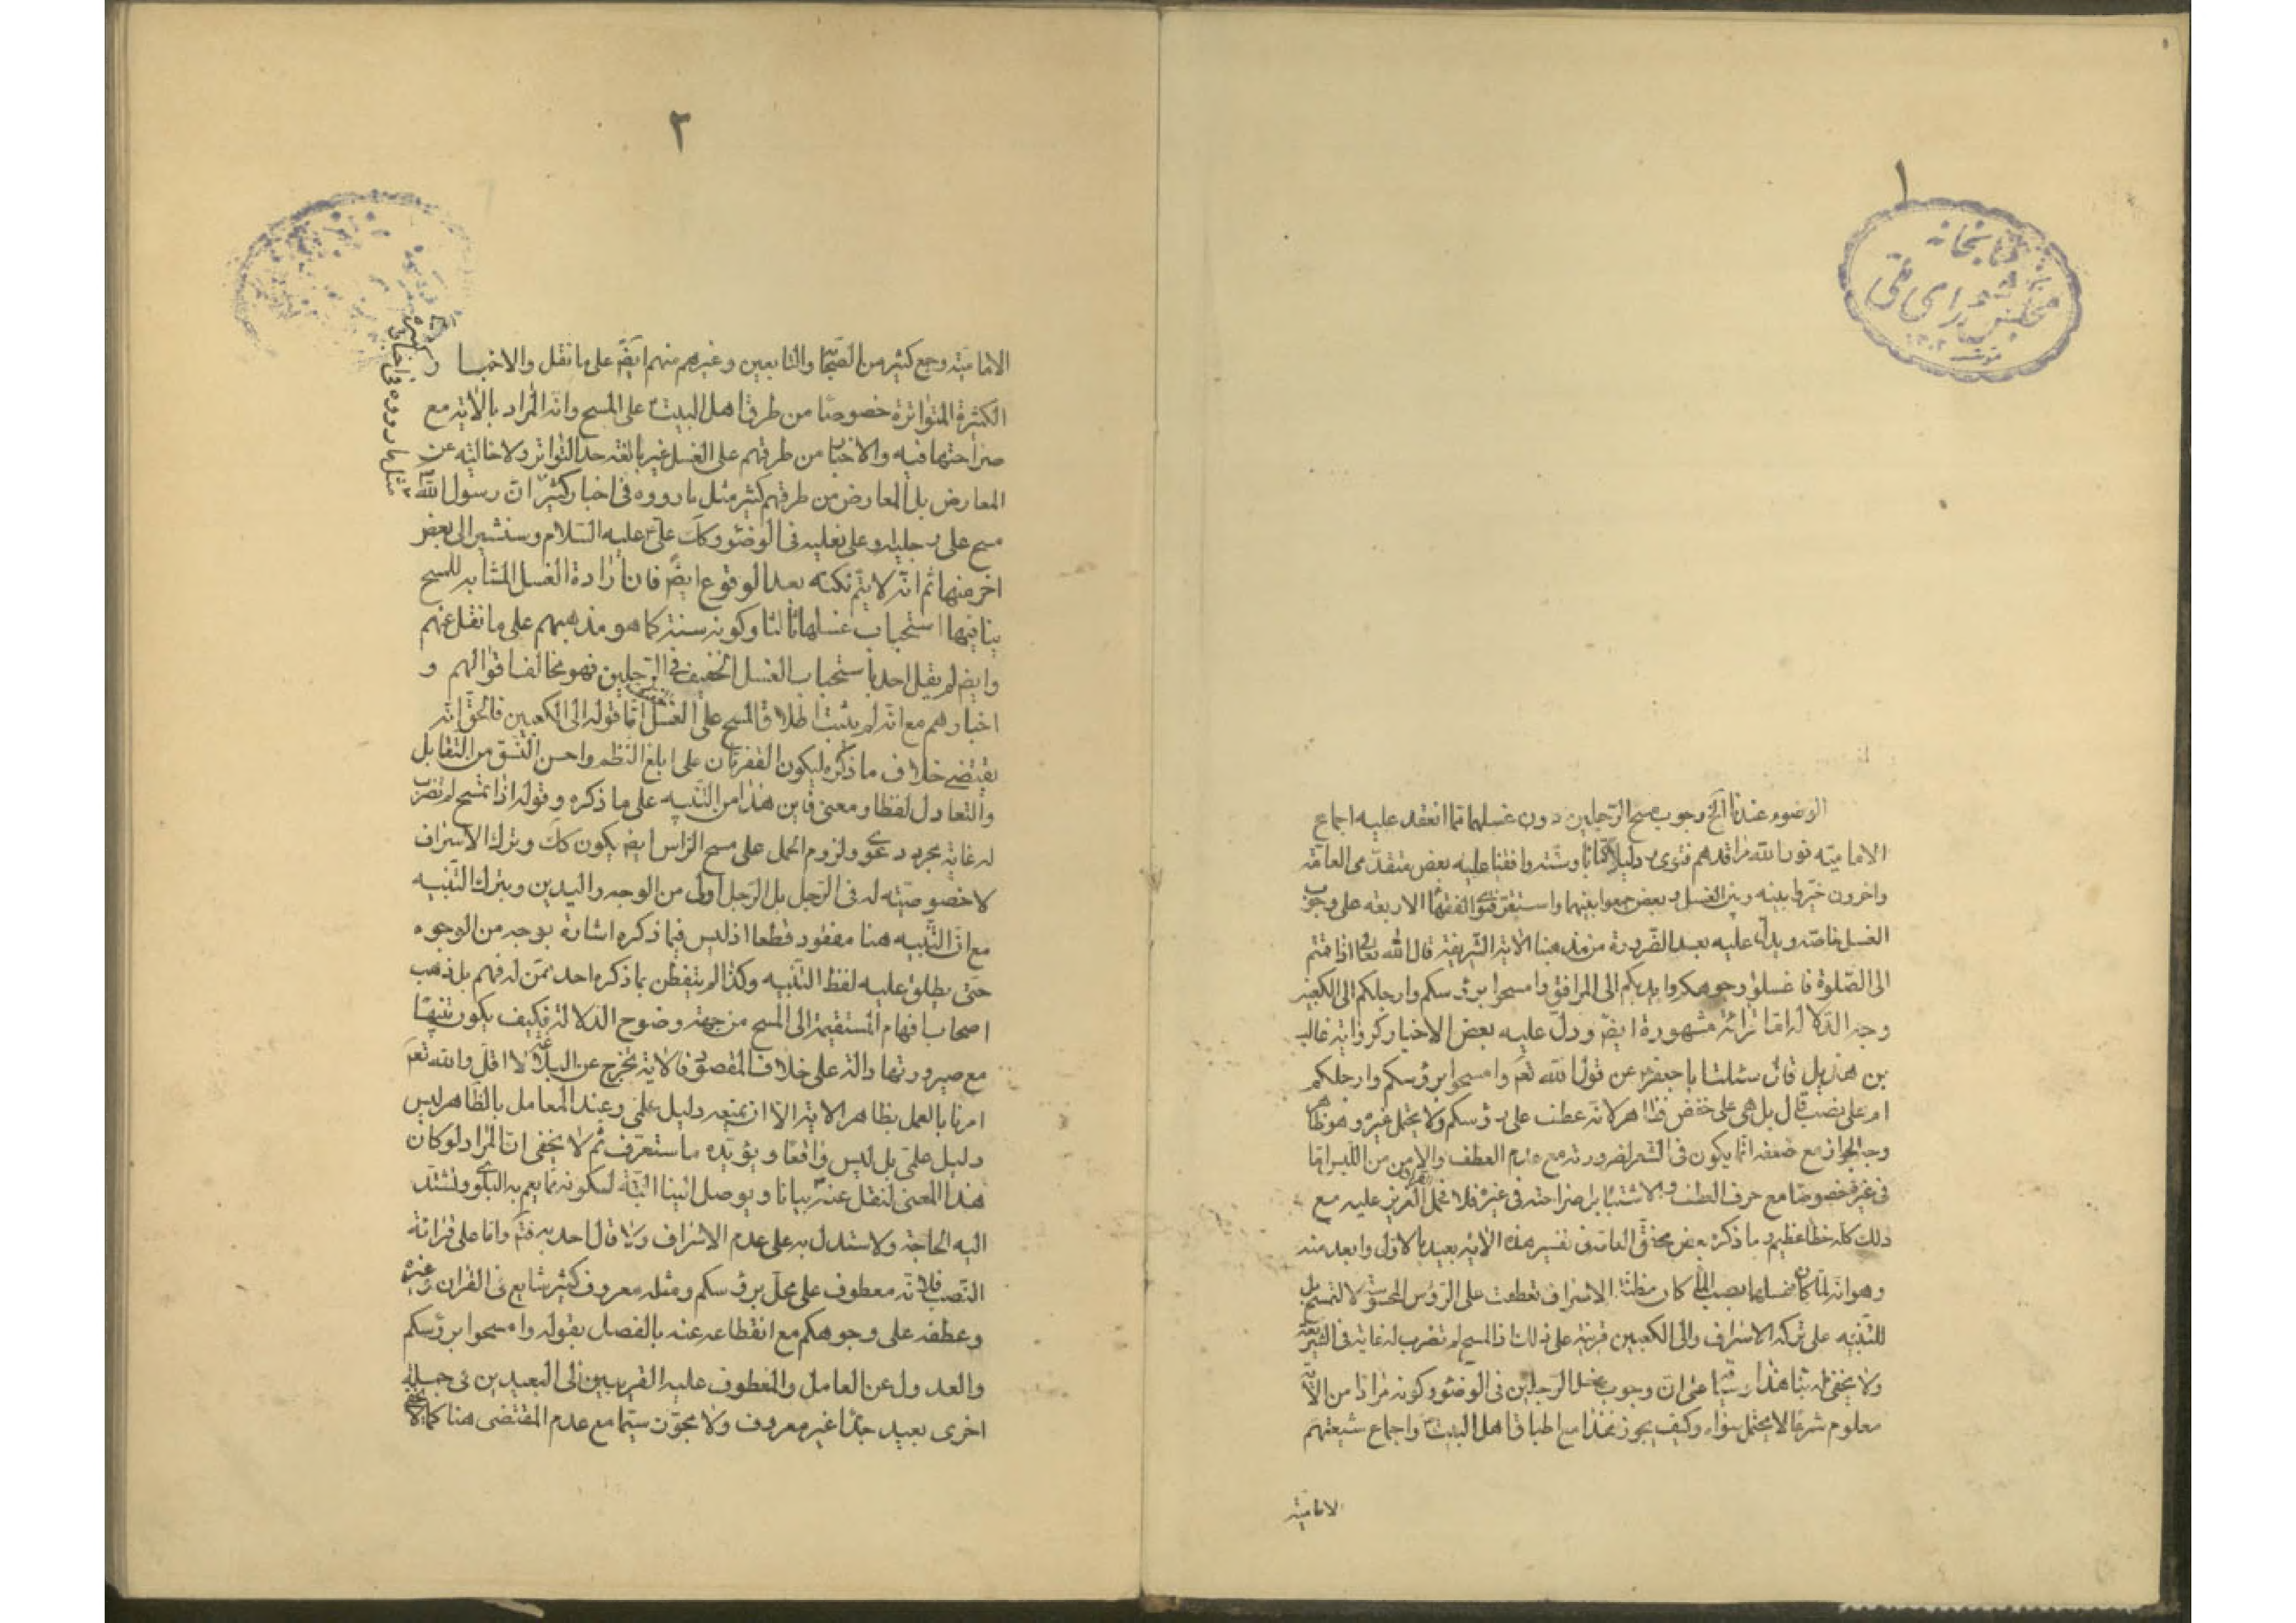 ١
كتابخانه
مجلس شورای ملی
الوضوء عندنا الخ وجوب مسح الرّجلين دون غسلهما ممّا انعقد عليه اجماع
الاماميّه نور الله مراقدهم فتوى و دليلا كتابا وسنّة وافقنا عليه بعض متقدّمى العامّة
واخرون خيّروا بينه وبين الغسل وبعض جمعوا بينهما واستقرّ فتوى الفقهاء الاربعه على وجوب
الغسل خاصّه ويدلّ عليه بعد الضّرورة من مذهبنا الاية الشّريفة قال الله تعالى اذا قمتم
الى الصّلوة فاغسلوا وجوهكم وايديكم الى المرافق وامسحوا برؤسكم وارجلكم الى الكعبين
وجه الدّلالة امّا قرائة مشهورة ايضّ ودلّ عليه بعض الاخبار كرواية غالب
بن هذيل قال سئلت ابا جعفر عن قول الله تعَ وامسحوا برؤسكم وارجلكم
ام على نصب قال بل هى على خفض فظاهر لانّه عطف على برؤسكم ولا يحتمل غيره وهو ظاهر
وجه الجواز مع ضعفه انّما يكون فى الشّعر لضرورته مع عدم العطف والامن من اللّبس امّا
فى غيره خصوصا مع حرف العطف والاشتباه بل صراحته فى غيره فلا فحمل القران العزيز عليه مع
ذلك كلّه خطاء عظيم وما ذكره بعض محقّقى العامّة فى تفسير هذه الاية بعيد بالاوّل وابعد منه
وهو انّه لمّا كان غسلها بصبّ الماء كان مظنّة الاسراف فعطفت على الرّؤس الممسوحة لا لتمسح بل
للتّنبيه على ترك الاسراف والى الكعبين قرينة على ذلك اذ المسح لم تضرب له غاية فى الشّريعة
ولا يخفى انّ بنا هذا على انّ وجوب غسل الرّجلين فى الوضوء وكونه مرادا من الاية
معلوم شرعا لا يحتمل سواه وكيف يجوز هذا مع اطباق اهل البيت واجماع شيعتهم
الاماميّه
٢
الاماميّه وجمع كثير من الصّحابة والتّابعين وغيرهم منهم ايضّ على ما نقل والاخبار
الكثيرة المتواترة خصوصا من طرق اهل البيت على المسح وانّه المراد بالاية مع
صراحتها فيه والاخبار من طرقهم على الغسل غير بالغة حدّ التّواتر ولا خالية عن
المعارض بل المعارض من طرقهم كثير مثل ما رووه فى اخبار كثيرة انّ رسول الله
مسح على رجليه وعلى نعليه فى الوضوء وكك علىّ عليه السّلام وسنشير الى بعض
اخر منها ثم انّه لا يتمّ نكته بعد الوقوع ايضّ فان ارادة الغسل المشابه للمسح
ينافيها استحباب غسلها ثالثا وكونه سنة كما هو مذهبهم على ما نقل عنهم
وايضّ لم يقل احد باستحباب الغسل الخفيف فى الرّجلين فهو مخالف اقوالهم و
اخبارهم مع انّه لم يثبت اطلاق المسح على الغسل امّا قوله الى الكعبين فالحقّ انّه
يقتضى خلاف ما ذكره ليكون الفقرتان على ابلغ النّظم واحسن النّسق من التّقابل
والتّعادل لفظا ومعنى فاين هذا من التّنبيه على ما ذكره وقوله اذ المسح لم تضرب
له غاية مجرد دعوى ولزوم الحمل على مسح الرّاس ايضّ يكون كك وترك الاسراف
لا خصوصيّته له فى الرّجل بل الرّجل اولى من الوجه واليدين وبترك التّنبيه
مع انّ التّنبيه هنا مفقود قطعا اذ ليس فيما ذكره اشارة بوجه من الوجوه
حتى يطلق عليه لفظ التّنبيه وكذا لم يتفطّن بما ذكره احد ممّن له فهم بل ذهب
اصحاب افهام المستقيمة الى المسح من جهة وضوح الدّلالة فكيف يكون تنبيها
مع صيرورتها دالّة على خلاف المقصود فالاية تخرج عن البلاغة لا اقلّ والله تعَ
امرنا بالعمل بظاهر الاية الا ان يمنعه دليل علمىّ وعند المعامل بالظّاهر ليس
دليل علمىّ بل ليس واقعا ويؤيّده ما ستعرف ثم لا يخفى انّ المراد لو كان
هذا المعنى لنقل عنه بيانا ويوصل الينا البتّة لكونه ممّا يعم به البلوى وتشتدّ
اليه الحاجة ولاستدلّ به على عدم الاسراف ولا قال احد به فتمّ وامّا على قرائة
النّصب فلانّه معطوف على محلّ برؤسكم ومثله معروف كثير شايع فى القران وغيره
وعطفه على وجوهكم مع انقطاعه عنه بالفصل بقوله وامسحوا برؤسكم
والعدول عن العامل والمعطوف عليه القريبين الى البعيدين فى جملة
اخرى بعيد جدّا غير معروف ولا مجوّز سيّما مع عدم المقتضى هنا كما لا يخفى
مثل ما رووه فى اخبار كثيرة